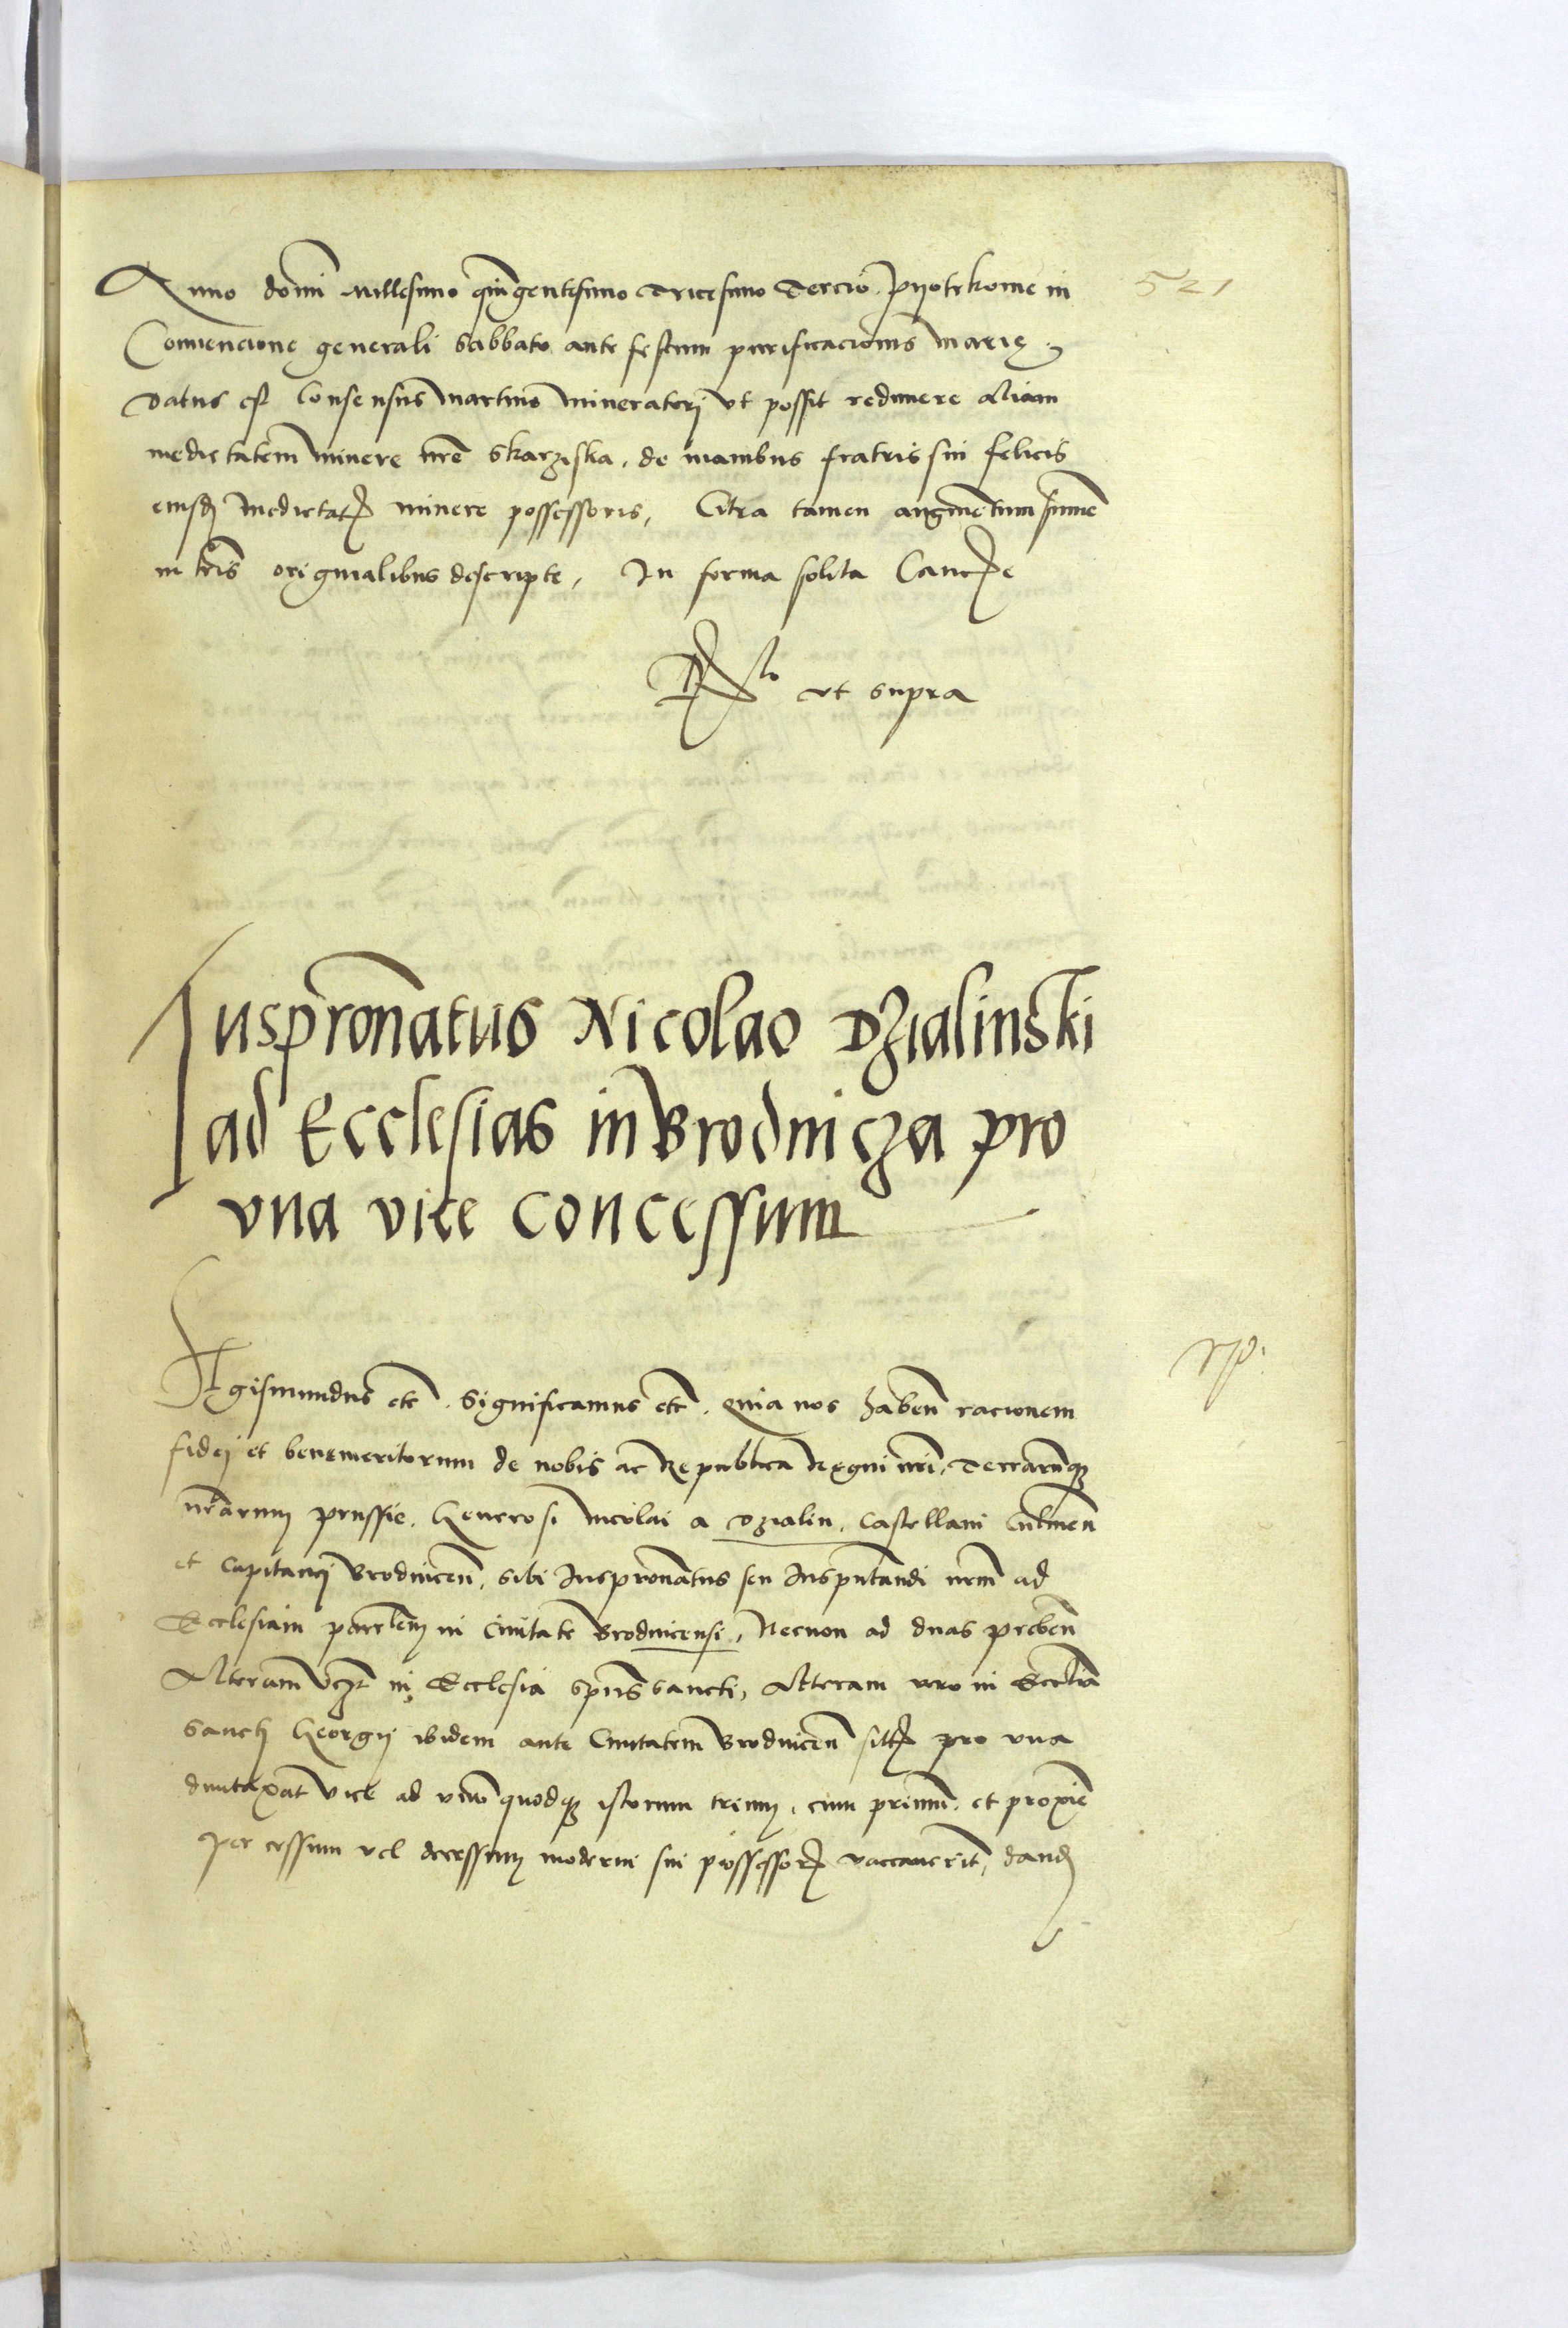 521
Anno domi Millesimo quingentesimo Tricesimo Tercio Pyotrkowie in
Convencione generali Sabbato ante festum purificacionis Marię
Datus est Consensus Martino Mineratori ut possit redimere aliam
medietatem minere nre Skarziska, de manibus fratris sui felicis
eiusd medietatis minere possessoris, Citra tamen augmentum summe
in lris originalibus descripte, In forma solita Cancrie
Rlo ut supra
Juspronatus Nicolao Dzialinski
ad Ecclesias in Brodnicza pro
vna vice concessum
rp.
Sigismundus etc. Significamus etc. Quia nos haben racionem
fidei et benemeritorum de nobis ac Republica Regni nri, Terrarumq
nrarum prussie, Generosi Nicolai a Dzialin, Castellani Culmen
et Capitanei Brodnicen, sibi Juspronatus seu Juspntandi nrm ad
Ecclesiam parrlem in Civitate Brodnicensi, Necnon ad duas preben
Alteram vczt in Ecclesia spus sancti, Alteram vero in Ecclia
Sancti Georgii ibidem ante Civitatem Brodnicen sitis pro vna
duntaxat vice ad vnumquodq istorum trium, cum primum et proxie
per cessum vel decessum moderni sui possessoris vaccaverit, dand